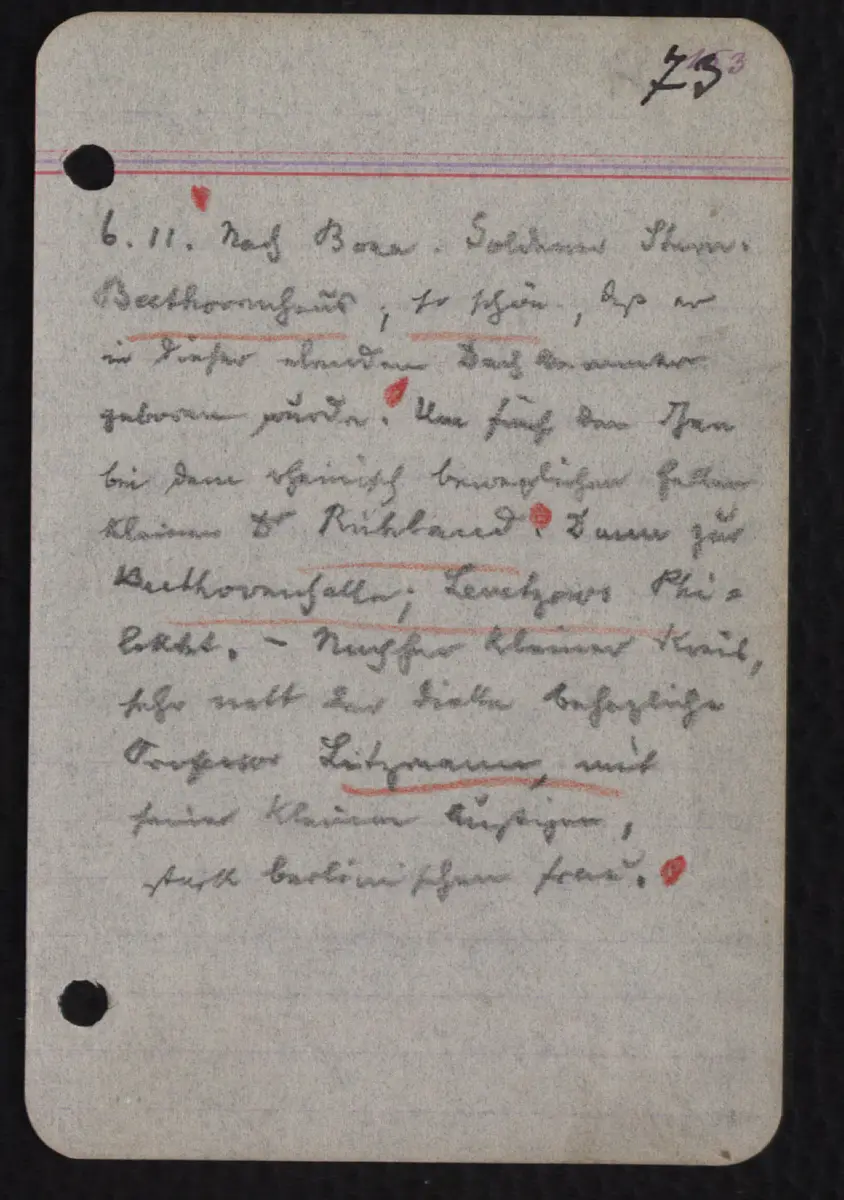 73
6. 11. Nach Bonn. Goldener Stern.
Beethovenhaus; so schön, daß er
in dieser elenden Dachkammer
geboren wurde. Um fünf den Thee
bei dem rheinisch beweglichen hellen
kleinen Dr Rühland. Dann zur
Beethovenhalle; Levetzows Phi=
loktet. – Nachher kleiner Kreis,
sehr nett der dicke behagliche
Professor Litzmann, mit
seiner kleinen lustigen,
stark berlinischen Frau.